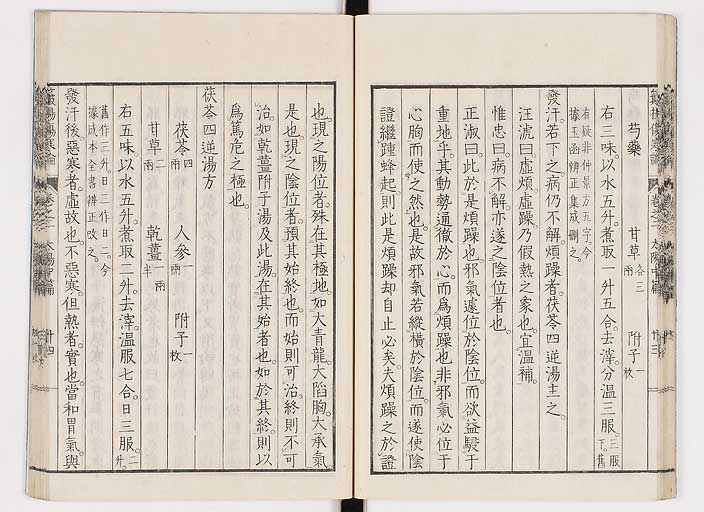 芍藥 甘草各三兩 附子一枚
右三味以水五升煮取一升五合去滓分溫三服三服下舊
有疑非仲景方五字今
據玉函辨正集成刪之
發汗若下之病仍不解煩躁者茯苓四逆湯主之
汪琥曰虛煩虛躁乃假熱之家也宜溫補
惟忠曰病不解亦遂之陰位者也
正淑曰此於是煩躁也邪氣遽位於陰位而欲益駸于
重地乎其動勢逼徹於心而爲煩躁也非邪氣必位于
心胸而使之然也是故邪氣若縱橫於陰位而遂使陰
證繼踵蜂起則此是煩躁却自止必矣夫煩躁之於證
也現之陽位者殊在其極地如大青龍大陷胸大承氣
是也現之陰位者預其始終也而始則可治終則不可
治如乾薑附子湯及此湯在其始者也如於其終則以
爲篤危之極也
茯苓四逆湯方
茯苓四兩 人參一兩
甘草二兩 乾薑一兩半 附子一枚
右五味以水五升煮取三升去滓溫服七合日三服二升
舊作三升日三作日二今
據成本全書辨正改之
發汗後惡寒者虛故也不惡寒但熱者實也當和胃氣與
卷之二 太陽中篇 廿三
卷之二 太陽中篇 廿四